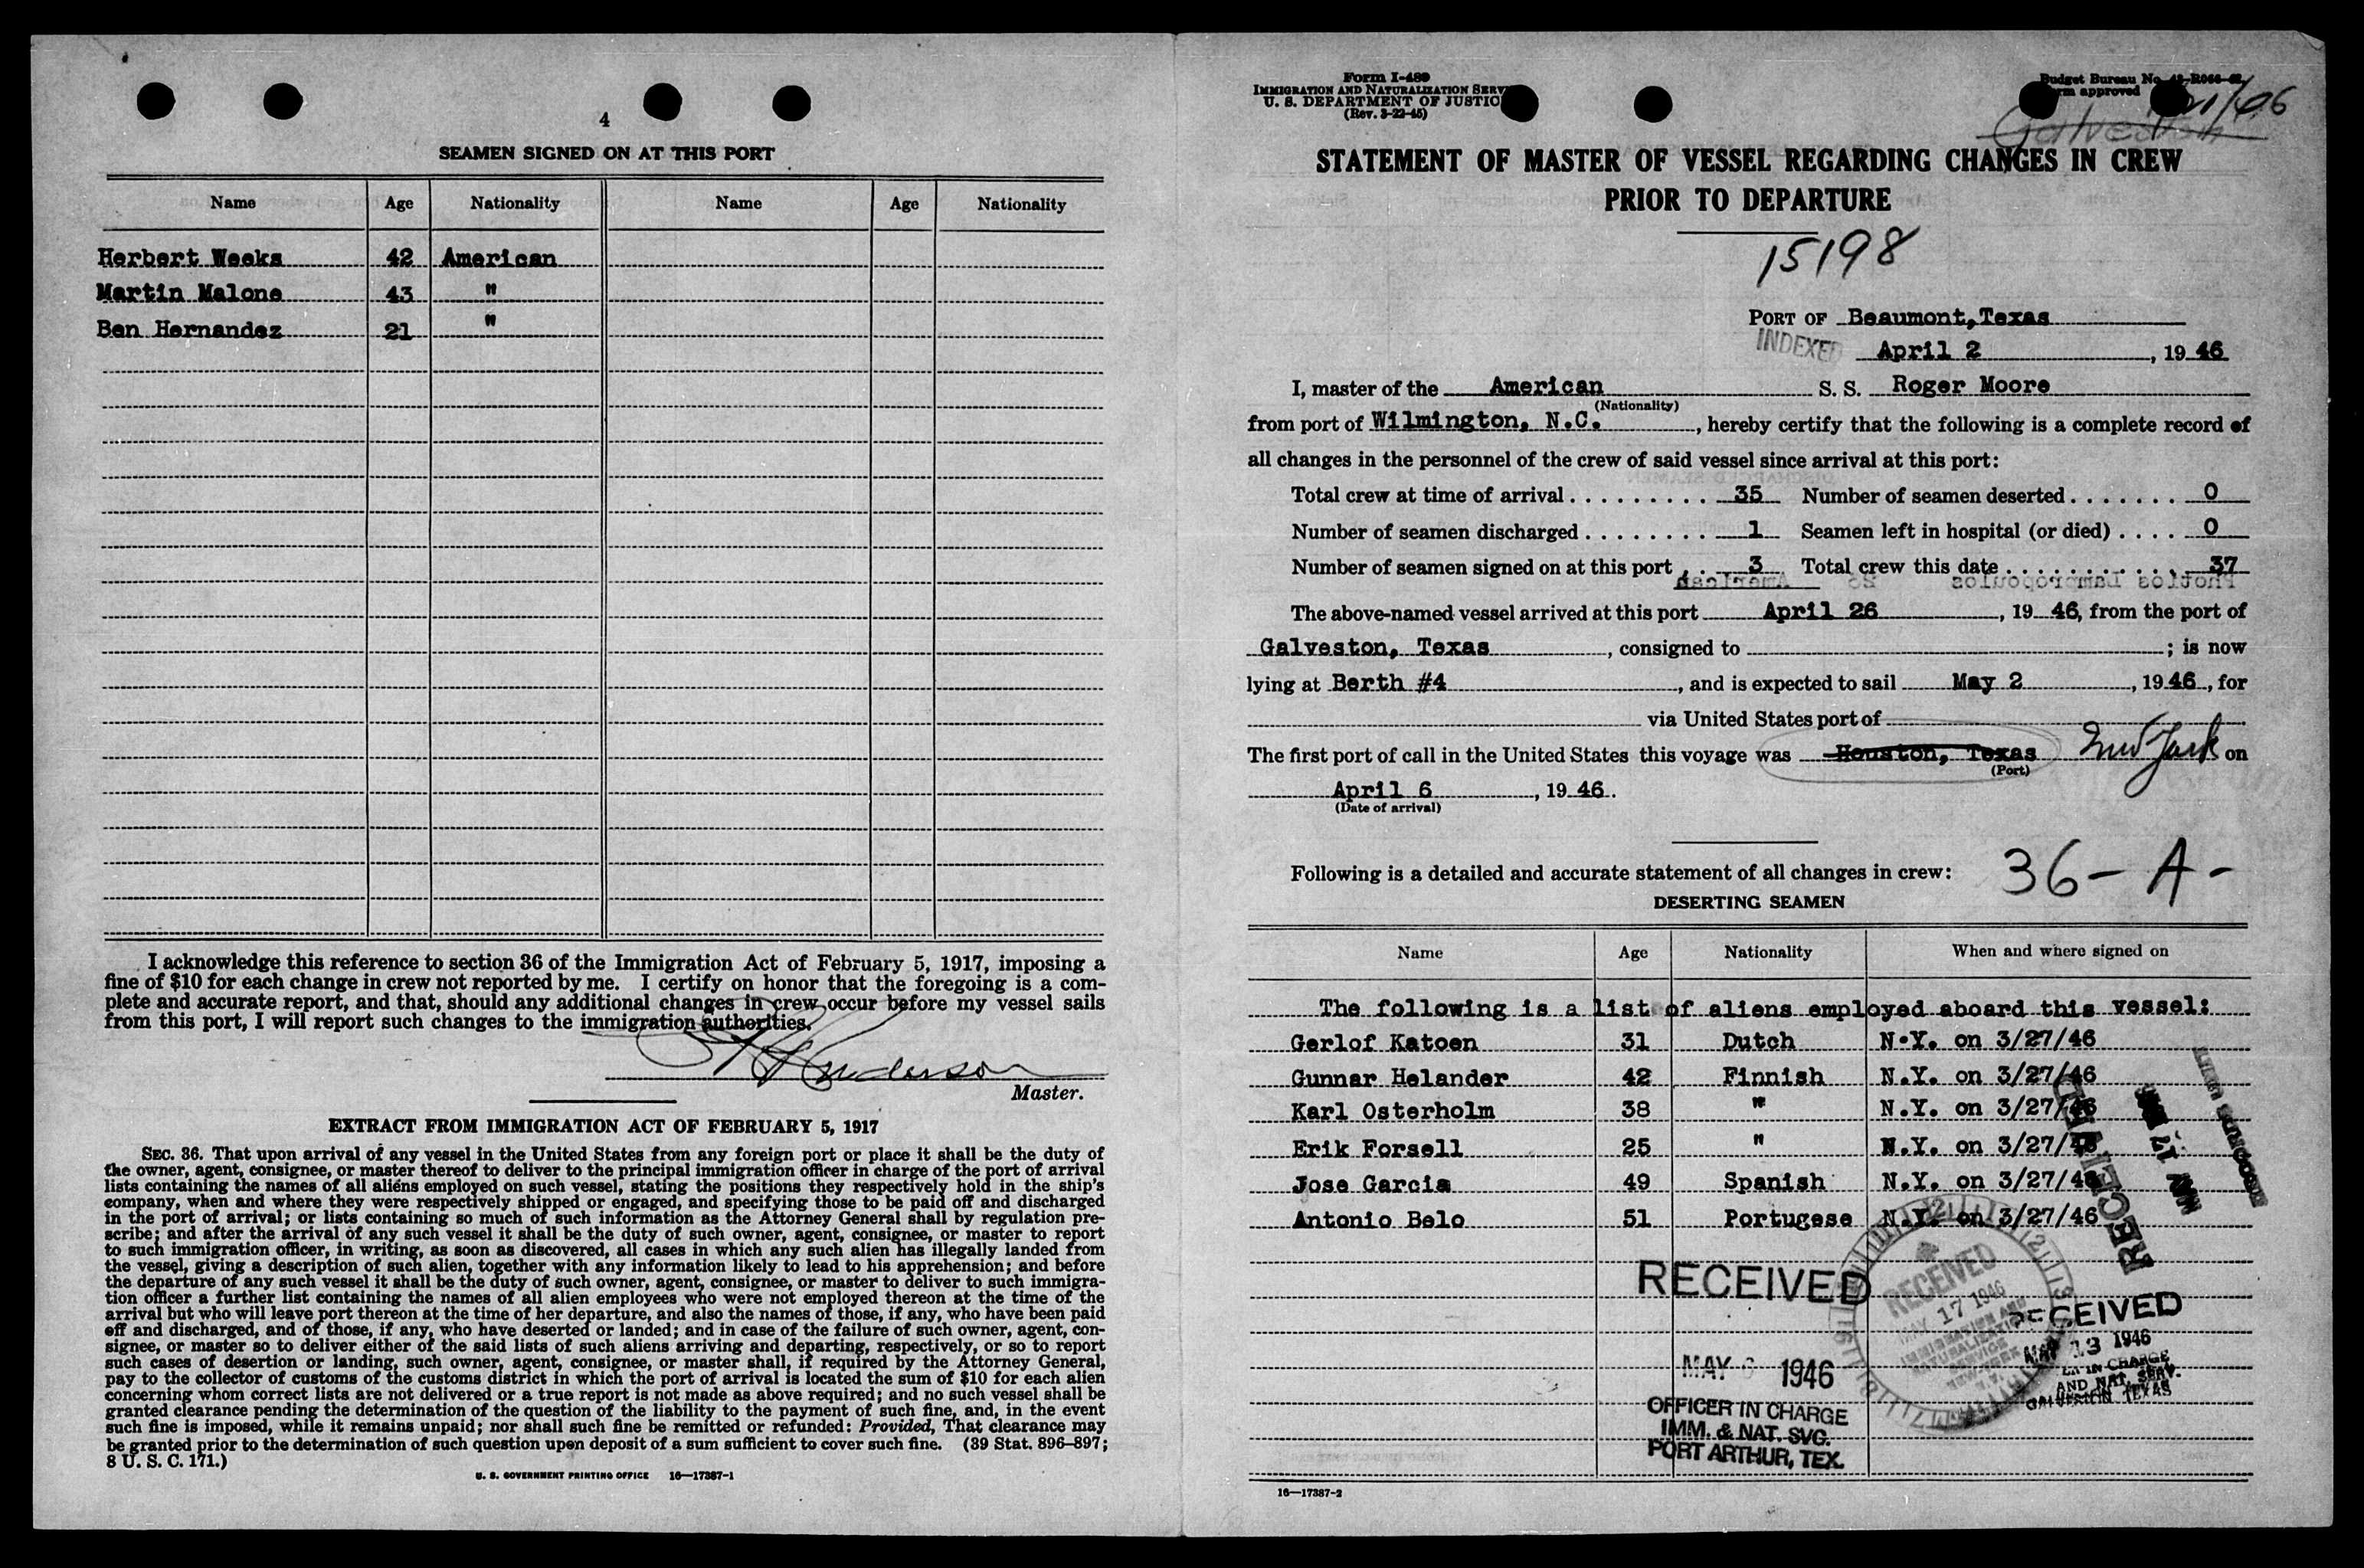 4
SEAMEN SIGNED ON AT THIS PORT
Name Age Nationality Name Age Nationality
Herbert Weeks 42 American
Martin Malone 43 "
Ben Hernandez 21 "
I acknowledge this reference to section 36 of the Immigration Act of February 5, 1917, imposing a
fine of $10 for each change in crew not reported by me. I certify on honor that the foregoing is a com-
plete and accurate report, and that, should any additional changes in crew occur before my vessel sails
from this port, I will report such changes to the immigration authorities.
Anderson
Master.
EXTRACT FROM IMMIGRATION ACT OF FEBRUARY 5, 1917
SEC. 36. That upon arrival of any vessel in the United States from any foreign port or place it shall be the duty of
the owner, agent, consignee, or master thereof to deliver to the principal immigration officer in charge of the port of arrival
lists containing the names of all aliens employed on such vessel, stating the positions they respectively hold in the ship's
company, when and where they were respectively shipped or engaged, and specifying those to be paid off and discharged
in the port of arrival; or lists containing so much of such information as the Attorney General shall by regulation pre-
scribe; and after the arrival of any such vessel it shall be the duty of such owner, agent, consignee, or master to report
to such immigration officer, in writing, as soon as discovered, all cases in which any such alien has illegally landed from
the vessel, giving a description of such alien, together with any information likely to lead to his apprehension; and before
the departure of any such vessel it shall be the duty of such owner, agent, consignee, or master to deliver to such immigra-
tion officer a further list containing the names of all alien employees who were not employed thereon at the time of the
arrival but who will leave port thereon at the time of her departure, and also the names of those, if any, who have been paid
off and discharged, and of those, if any, who have deserted or landed; and in case of the failure of such owner, agent, con-
signee, or master so to deliver either of the said lists of such aliens arriving and departing, respectively, or so to report
such cases of desertion or landing, such owner, agent, consignee, or master shall, if required by the Attorney General,
pay to the collector of customs of the customs district in which the port of arrival is located the sum of $10 for each alien
concerning whom correct lists are not delivered or a true report is not made as above required; and no such vessel shall be
granted clearance pending the determination of the question of the liability to the payment of such fine, and, in the event
such fine is imposed, while it remains unpaid; nor shall such fine be remitted or refunded: Provided, That clearance may
be granted prior to the determination of such question upon deposit of a sum sufficient to cover such fine. (39 Stat. 896–897;
8 U. S. C. 171.)
U. S. GOVERNMENT PRINTING OFFICE 16—17387-1
Form I-489
IMMIGRATION AND NATURALIZATION
U. S. DEPARTMENT OF
(Rev. 3-22-45)
Budget Bureau No.
approved
Galveston
STATEMENT OF MASTER OF VESSEL REGARDING CHANGES IN CREW
PRIOR TO DEPARTURE
15198
PORT OF Beaumont, Texas
INDEXED April 2, 19 46
I, master of the American S. S. Roger Moore
(Nationality)
from port of Wilmington, N.C., hereby certify that the following is a complete record of
all changes in the personnel of the crew of said vessel since arrival at this port:
Total crew at time of arrival 35 Number of seamen deserted 0
Number of seamen discharged 1 Seamen left in hospital (or died) 0
Number of seamen signed on at this port 3 Total crew this date 37
The above-named vessel arrived at this port April 26, 19 46, from the port of
Galveston, Texas, consigned to ; is now
lying at Berth #4, and is expected to sail May 2, 19 46, for
via United States port of
The first port of call in the United States this voyage was Houston, Texas New York on
(Port)
April 6, 19 46.
(Date of arrival)
Following is a detailed and accurate statement of all changes in crew: 36-A-
DESERTING SEAMEN
Name Age Nationality When and where signed on
The following is a list of aliens employed aboard this vessel:
Gerlof Katoen 31 Dutch N.Y. on 3/27/46
Gunnar Helander 42 Finnish N.Y. on 3/27/46
Karl Osterholm 38 " N.Y. on 3/27/46
Erik Forsell 25 " N.Y. on 3/27/46
Jose Garcia 49 Spanish N.Y. on 3/27/46
Antonio Belo 51 Portugese N.Y. on 3/27/46
RECEIVED
MAY 1946
OFFICER IN CHARGE
IMM. & NAT. SVG.
PORT ARTHUR, TEX.
RECEIVED
MAY 17 1946
IMMIGRATION AND
NATURALIZATION
SERVICE
RECEIVED
MAY 13 1946
IN CHARGE
AND NAT. SERV.
GALVESTON TEXAS
RECEIVED
MAY 17
16—17387-2